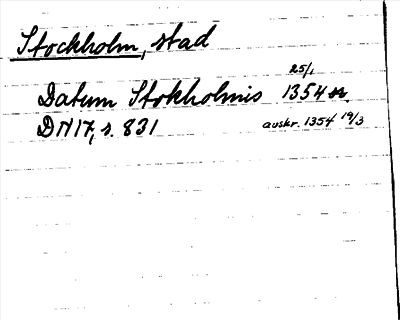 Stockholm, stad
25/1
Datum Stokholmis 1354
DN 17, s. 831 avskr. 1354 19/3